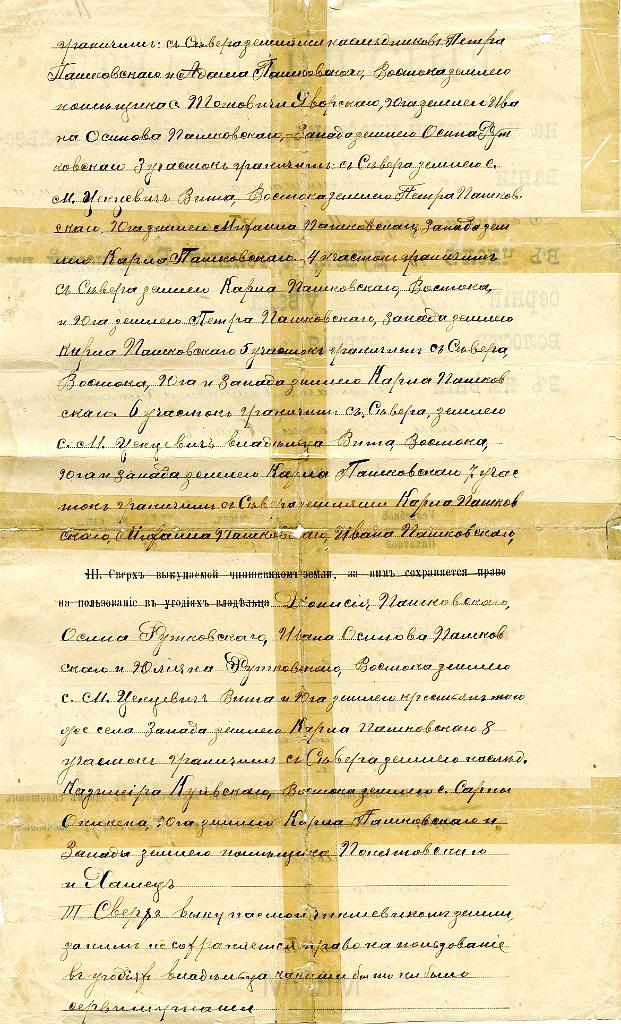 граничитъ: съ Сѣвера землями наслѣдниковъ Петра
Пашковскаго и Адама Пашковскаго, Востока землею
помѣщика с. Яворскаго, Юга землею Ива
на Осипова Пашковскаго, Запада землею Осипа Рут
ковскаго 3 участокъ граничитъ: съ Сѣвера землею с.
М. Вита, Востока землею Петра Пашков.
скаго, Юга землею Михаила Пашковскаго, Запада зем
лею Карла Пашковскаго. 4 участокъ граничитъ
съ Сѣвера землею Карла Пашковскаго, Востока,
и Юга землею Петра Пашковскаго, Запада землею
Карла Пашковскаго 5 участокъ граничитъ съ Сѣвера,
Востока, Юга и Запада землею Карла Пашков
скаго. 6 участокъ граничитъ съ Сѣвера, землею
с. М. владѣльца Вита, Востока,
Юга и Запада землею Карла Пашковскаго 7 учас
токъ граничитъ съ Сѣвера землями Карла Пашков
скаго, Михаила Пашковскаго, Ивана Пашковскаго,
III. Сверхъ выкупаемой чиншевикомъ земли, за нимъ сохраняется право
на пользованіе въ угодіяхъ владѣльца Діонисія Пашковскаго,
Осипа Рутковскаго, Ивана Осипова Пашков
скаго и Юліяна Рутковскаго, Востока землею
с. М. Вита и Юга землею крестьянъ того
же села Запада землею Карла Пашковскаго 8
участокъ граничитъ съ Сѣвера землею наслѣд.
Казиміра Востока землею с. Сарны
Юга землею Карла Пашковскаго и
Запада землею помѣщика Понятовскаго
и
III Сверхъ выкупаемой чиншевикомъ земли,
за нимъ не сохраняется право на пользованіе
въ угодіяхъ владѣльца какими бы то ни было
сервитутами